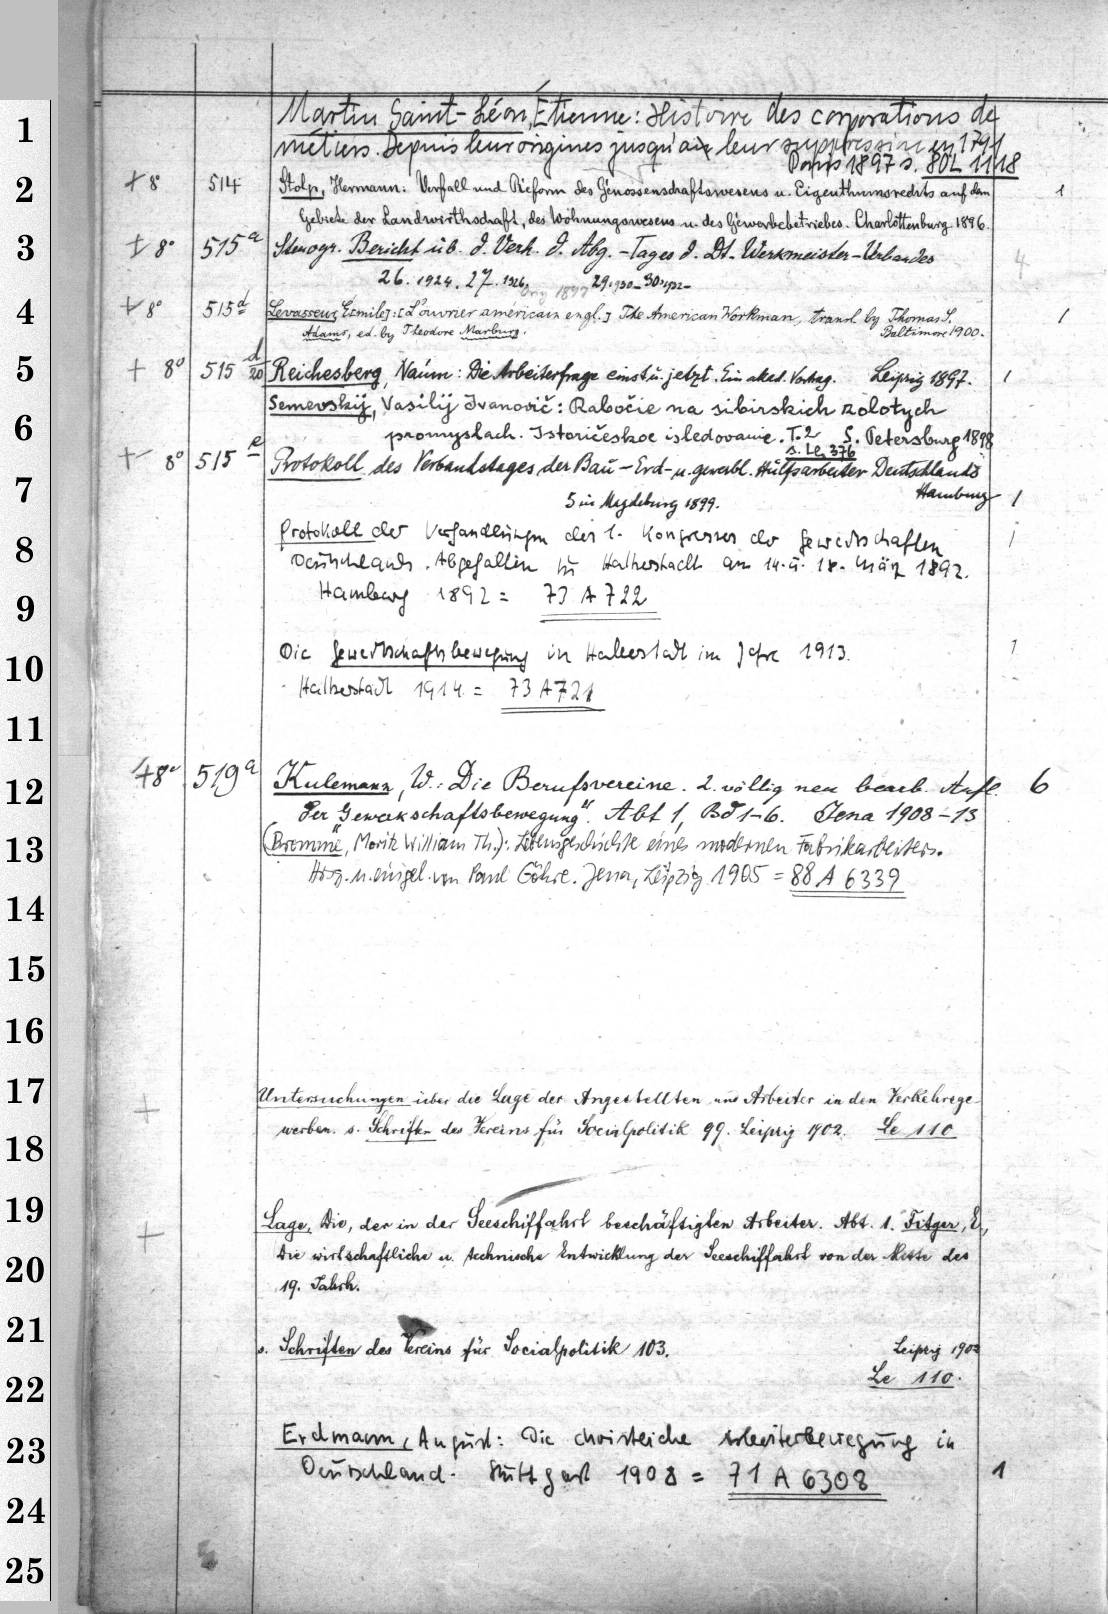 Martin Saint-Léon, Étienne: Histoire des corporations de
1
métiers. Depuis leur origines jusqu'au leur suppression en 1791
Paris 1897 s. 80L 1118
2 + 8° 514 Stolp, Hermann: Verfall und Reform des Genossenschaftswesens u. Eigenthumsrechts auf dem 1
Gebiete der Landwirthschaft, des Wohnungswesens u. des Gewerbebetriebes. Charlottenburg 1896.
3 + 8° 515a Stenogr. Bericht üb. d. Verh. d. Abg.-Tages d. Dt. Werkmeister-Verbandes 4
26. 1924. 27. 1926, 29. 1930 - 30. 1932 -
4 + 8° 515d Levasseur, E[mile]: [L'ouvrier américain engl.] The American Workman, transl. by Thomas S. 1
Adams, ed. by Theodore Marburg. Baltimore 1900.
5 + 8° 515 d/20 Reichesberg, Naúm: Die Arbeiterfrage einst u. jetzt. Ein akad. Vortrag. Leipzig 1897. 1
Semevskij, Vasilij Ivanovič: Rabočie na sibirskich zolotych
6
promyslach. Istoričeskoe isledovanie. T. 2 S. Petersburg 1898
s. Le 376
+ 8° 515 e Protokoll des Verbandstages der Bau-Erd- u. gewerbl. Hülfsarbeiter Deutschlands
7 5 in Magdeburg 1899. Hamburg 1
Protokoll der Verhandlungen des 1. Kongresses der Gewerkschaften 1
8
Deutschlands. Abgehalten zu Halberstadt am 14. - 18. März 1892.
9 Hamburg 1892 = 73 A 722
10 Die Gewerkschaftsbewegung in Halberstadt im Jahre 1913. 1
Halberstadt 1914 = 73 A 721
11
12 + 8° 519a Kulemann, W.: Die Berufsvereine. 2. völlig neu bearb. Aufl. 6
der „Gewerkschaftsbewegung". Abt 1, Bd 1-6. Jena 1908-13
13 (Bromme, Moritz William Th.): Lebensgeschichte eines modernen Fabrikarbeiters.
Hrsg. u. eingel. von Paul Göhre. Jena, Leipzig 1905 = 88 A 6339
14
15
16
17 + Untersuchungen über die Lage der Angestellten und Arbeiter in den Verkehrsge-
18 werben. s. Schriften des Vereins für Socialpolitik 99. Leipzig 1902. Le 110
19 + Lage, Die, der in der Seeschiffahrt beschäftigten Arbeiter. Abt. 1. Fitger, E.,
20 Die wirtschaftliche u. technische Entwicklung der Seeschiffahrt von der Mitte des
19. Jahrh.
21
s. Schriften des Vereins für Socialpolitik 103. Leipzig 1902
22 Le 110.
23 Erdmann, August: Die christliche Arbeiterbewegung in
Deutschland. Stuttgart 1908 = 71 A 6308 1
24
25